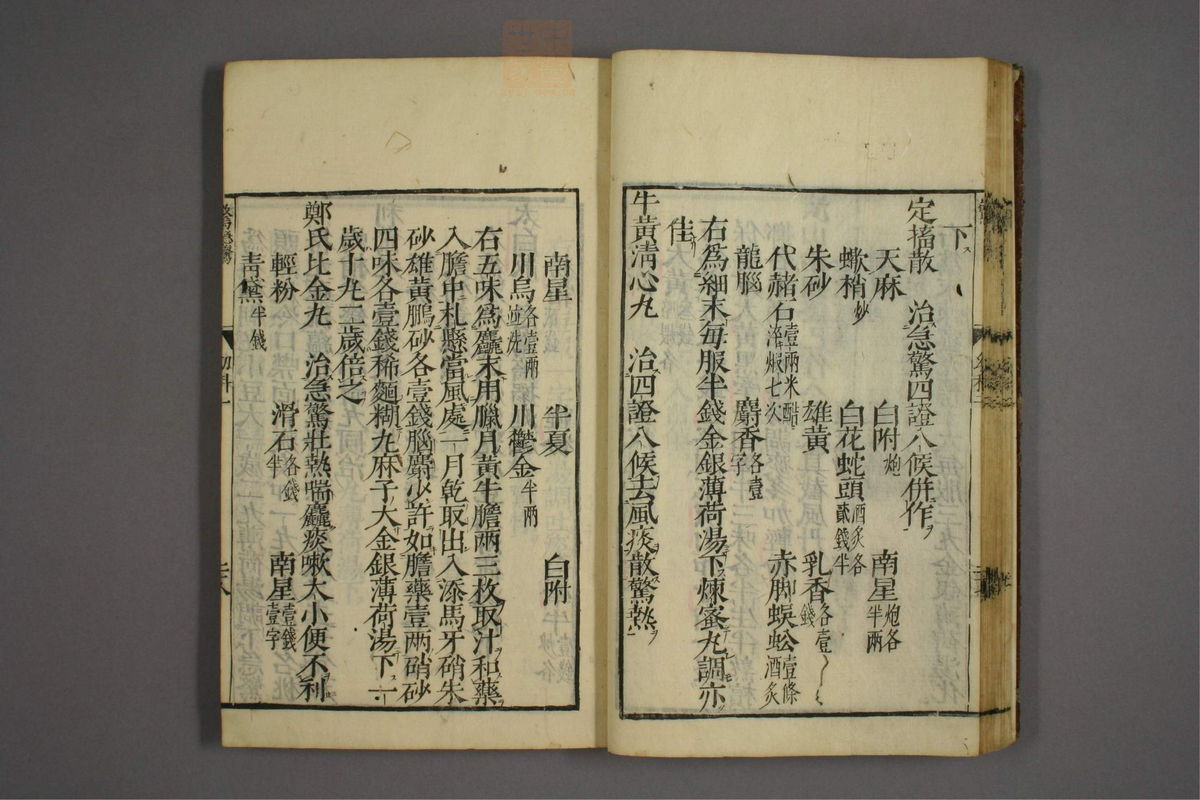 下ス
定搐散　治急驚四證八候併作ヲ
天麻　白附炮　南星炮各半兩
蠍梢炒　白花蛇頭酒炙各貳錢半
朱砂　雄黃　乳香各壹錢
代赭石壹兩米醋淬煅七次　赤脚蜈蚣壹條酒炙
龍腦　麝香各壹字
右爲細末每服半錢金銀薄荷湯下煉蜜丸調亦
佳
牛黃清心丸　治四證八候去風痰散驚熱ヲ
南星　半夏　白附
川烏各壹兩並洗　川鬱金半兩
右五味爲麤末用臘月黃牛膽兩三枚取汁和藥
入膽中札懸當風處一月乾取出入添馬牙硝朱
砂雄黃鵬砂各壹錢腦麝少許如膽藥壹兩硝砂
四味各壹錢稀麵糊丸麻子大金銀薄荷湯下一
歲十九二歲倍之
鄭氏比金丸　治急驚壯熱喘麤痰嗽大小便不利
輕粉　滑石各錢半　南星壹錢壹字
青黛半錢